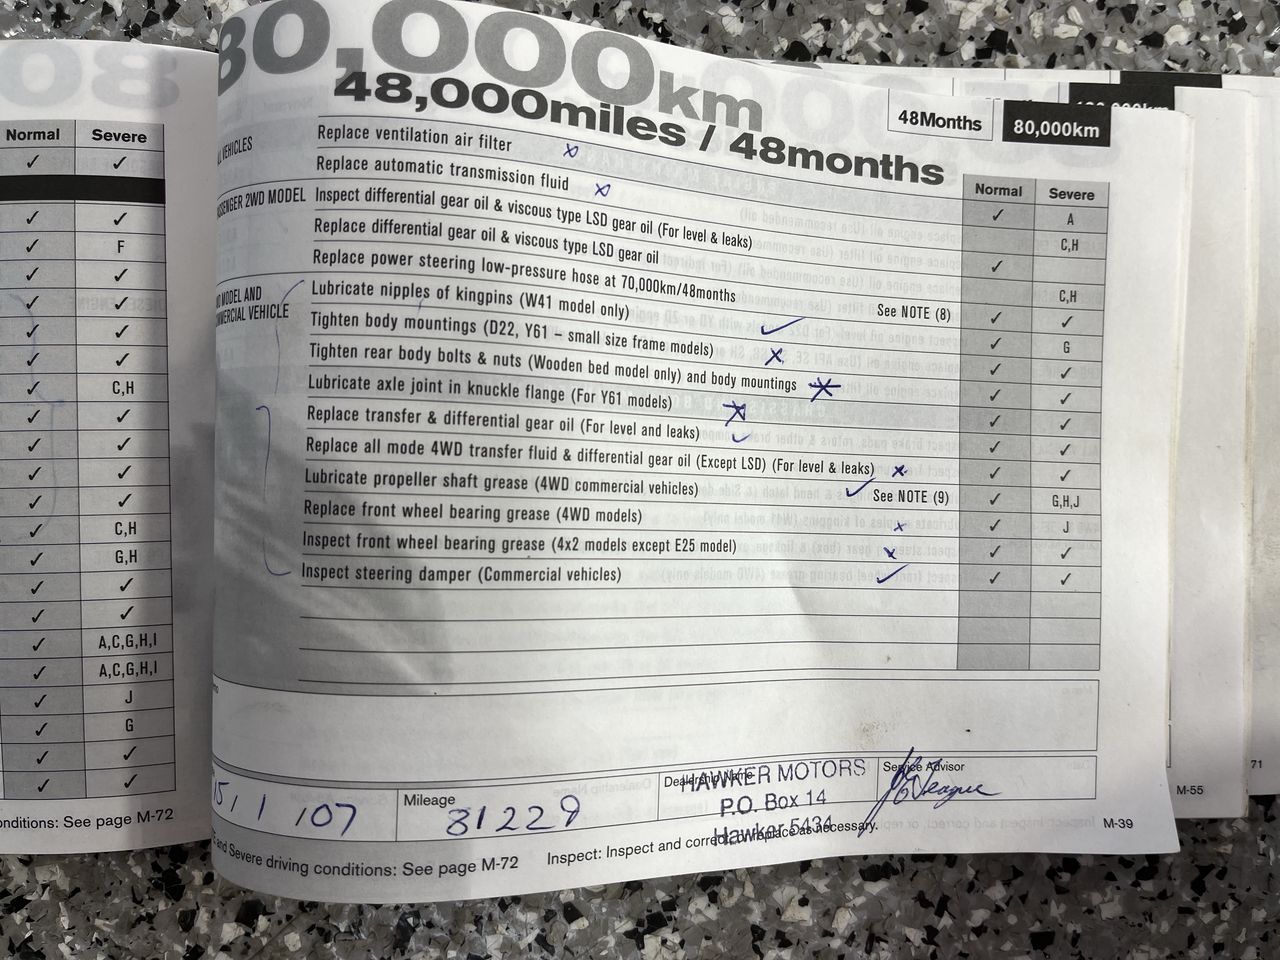 80,000km
48,000miles / 48months
48Months
80,000km
Normal Severe
Normal Severe
Replace ventilation air filter x ✓ A
Replace automatic transmission fluid x C,H
PASSENGER 2WD MODEL
Inspect differential gear oil & viscous type LSD gear oil (For level & leaks) ✓
Replace differential gear oil & viscous type LSD gear oil C,H
Replace power steering low-pressure hose at 70,000km/48months See NOTE (8) ✓ ✓
Lubricate nipples of kingpins (W41 model only) ✓ ✓ G
Tighten body mountings (D22, Y61 – small size frame models) x ✓ ✓
Tighten rear body bolts & nuts (Wooden bed model only) and body mountings x ✓ ✓
Lubricate axle joint in knuckle flange (For Y61 models) x ✓ ✓
Replace transfer & differential gear oil (For level and leaks) ✓ ✓ ✓
Replace all mode 4WD transfer fluid & differential gear oil (Except LSD) (For level & leaks) x ✓ ✓
Lubricate propeller shaft grease (4WD commercial vehicles) ✓ See NOTE (9) ✓ G,H,J
Replace front wheel bearing grease (4WD models) x ✓ J
Inspect front wheel bearing grease (4x2 models except E25 model) x ✓ ✓
Inspect steering damper (Commercial vehicles) ✓ ✓ ✓
✓ ✓
✓ ✓
✓ F
✓ ✓
✓ ✓
✓ ✓
✓ ✓
✓ C,H
✓ ✓
✓ ✓
✓ ✓
✓ ✓
✓ C,H
✓ G,H
✓ ✓
✓ ✓
✓ A,C,G,H,I
✓ A,C,G,H,I
✓ J
✓ G
✓ ✓
✓ ✓
15/1/07
Mileage
81229
Dealership Name
HAWKER MOTORS
P.O. Box 14
Hawker 5434
Service Advisor
and Severe driving conditions: See page M-72 Inspect: Inspect and correct or replace as necessary.
M-39
conditions: See page M-72
M-55
71